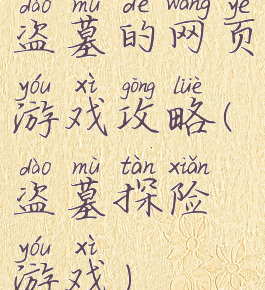 dào mù de wǎng yè
盗墓的网页
yóu xì gōng lüè
游戏攻略(
dào mù tàn xiǎn
盗墓探险
yóu xì
游戏)